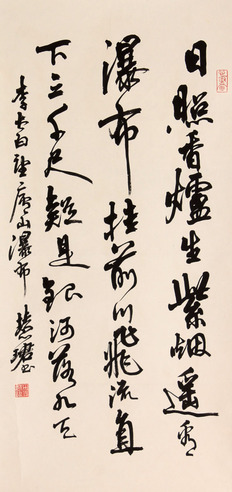 日照香爐生紫烟遥看
瀑布挂前川飛流直
下三千尺疑是銀河落九天
李太白望庐山瀑布